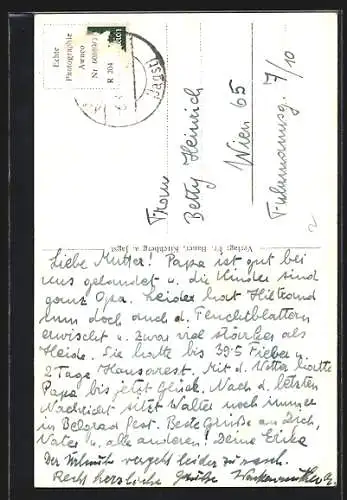 Echte
Photographie
Awuco
R 204
(Jagst)
Frau
Betty Heinrich
Wien 65
7/10
Verlag: Fr. Bauer, Kirchberg a. Jagst
Liebe Mutter! Papa ist gut bei
uns gelandet u. die Kinder sind
ganz Opa. Leider hat Hiltraud
nun doch auch d. Feuchtblattern
erwischt u. zwar viel stärker als
Heide. Sie hatte bis 39·5 Fieber u.
2 Tage Hausarrest. Mit d. Wetter hatte
Papa bis jetzt Glück. Nach d. letzten
Nachricht sitzt Walter noch immer
in Belgrad fest. Beste Grüße an Dich,
Vater u. alle anderen! Deine Erika
Der Urlaub vergeht leider zu rasch.
Recht herzliche Grüße